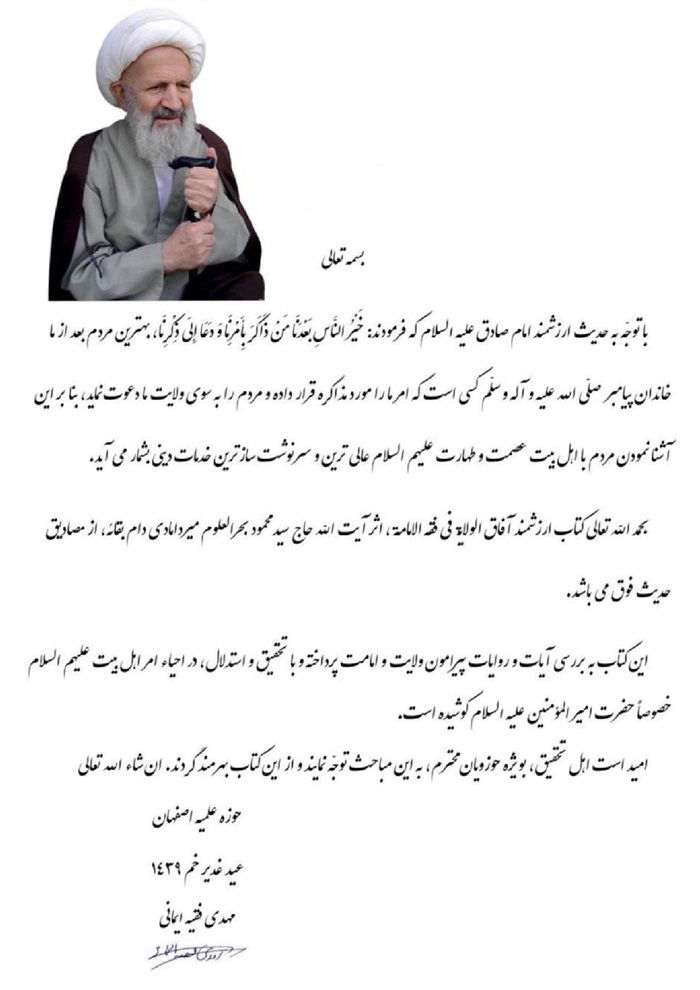 بسمه تعالی
با توجّه به حدیث ارزشمند امام صادق علیه السلام که فرمودند: خَیْرُ النَّاسِ بَعْدَنَا مَنْ ذَاکَرَ بِأَمْرِنَا وَ دَعَا إِلَی ذِکْرِنَا، بهترین مردم بعد از ما
خاندان پیامبر صلّی الله علیه و آله وسلّم کسی است که امر ما را مورد مذاکره قرار داده و مردم را به سوی ولایت ما دعوت نماید، بنا بر این
آشنا نمودن مردم با اهل بیت عصمت و طهارت علیهم السلام عالی ترین و سرنوشت سازترین خدمات دینی بشمار می آید.
بحمد الله تعالی کتاب ارزشمند آفاق الولایة فی فقه الامامة، اثر آیت الله حاج سید محمود بحرالعلوم میردامادی دام بقائه، از مصادیق
حدیث فوق می باشد.
این کتاب به بررسی آیات و روایات پیرامون ولایت و امامت پرداخته و با تحقیق و استدلال، در احیاء امر اهل بیت علیهم السلام
خصوصاً حضرت امیر المؤمنین علیه السلام کوشیده است.
امید است اهل تحقیق، بویژه حوزویان محترم، به این مباحث توجّه نمایند و از این کتاب بهرمند گردند. ان شاء الله تعالی
حوزه علمیه اصفهان
عید غدیر خم ۱٤۳۹
مهدی فقیه ایمانی